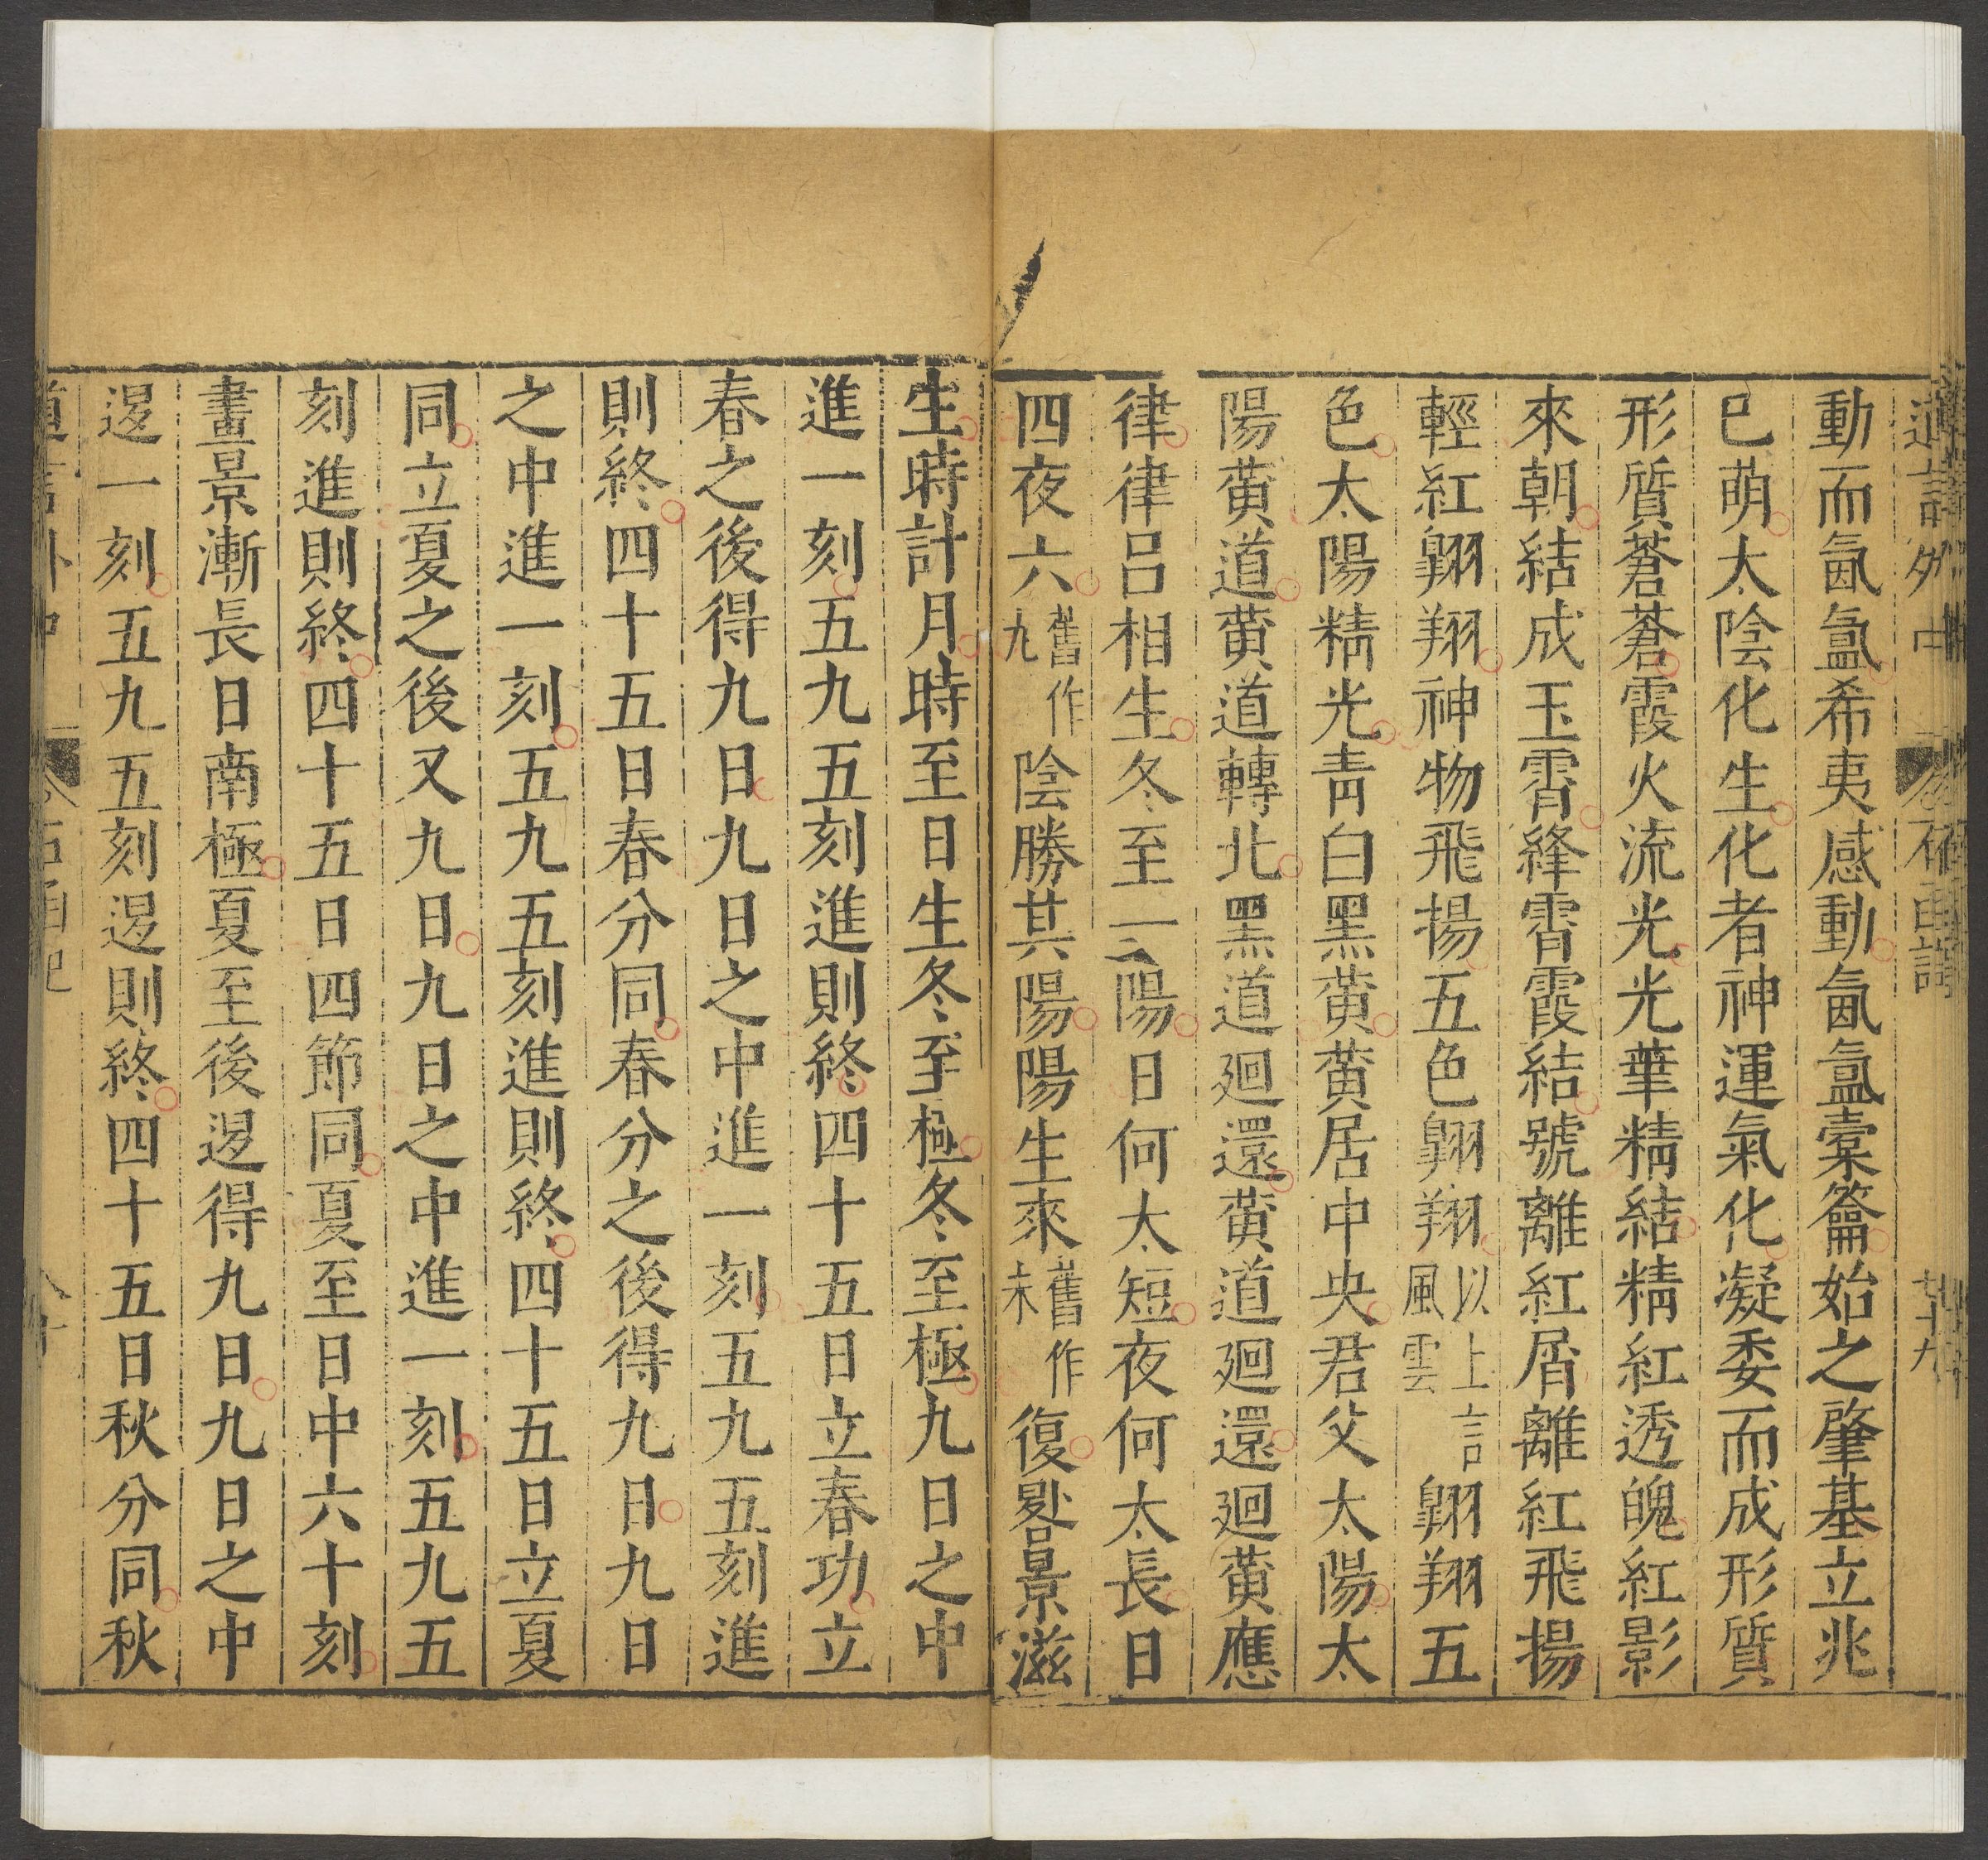 動而氤氳希夷感動氤氳橐籥始之肇基立兆
巳萌太陰化生化者神運氣化凝委而成形質
形質蒼蒼霞火流光光華精結精紅透魄紅影
來朝結成玉霄絳霄霞結號離紅屑離紅飛揚
輕紅翺翔神物飛揚五色翺翔以上言風雲翺翔五
色太陽精光青白黑黃黃居中央君父太陽太
陽黃道黃道轉北黑道迴還黃道迴還迴黃應
律律呂相生冬至一之陽日何太短夜何太長日
四夜六舊作九陰勝其陽陽生來舊作未復晷景滋
生時計月時至日生冬至極冬至極九日之中
進一刻五九五刻進則終四十五日立春功立
春之後得九日九日之中進一刻五九五刻進
則終四十五日春分同春分之後得九日九日
之中進一刻五九五刻進則終四十五日立夏
同立夏之後又九日九日之中進一刻五九五
刻進則終四十五日四節同夏至日中六十刻
晝景漸長日南極夏至後退得九日九日之中
退一刻五九五刻退則終四十五日秋分同秋